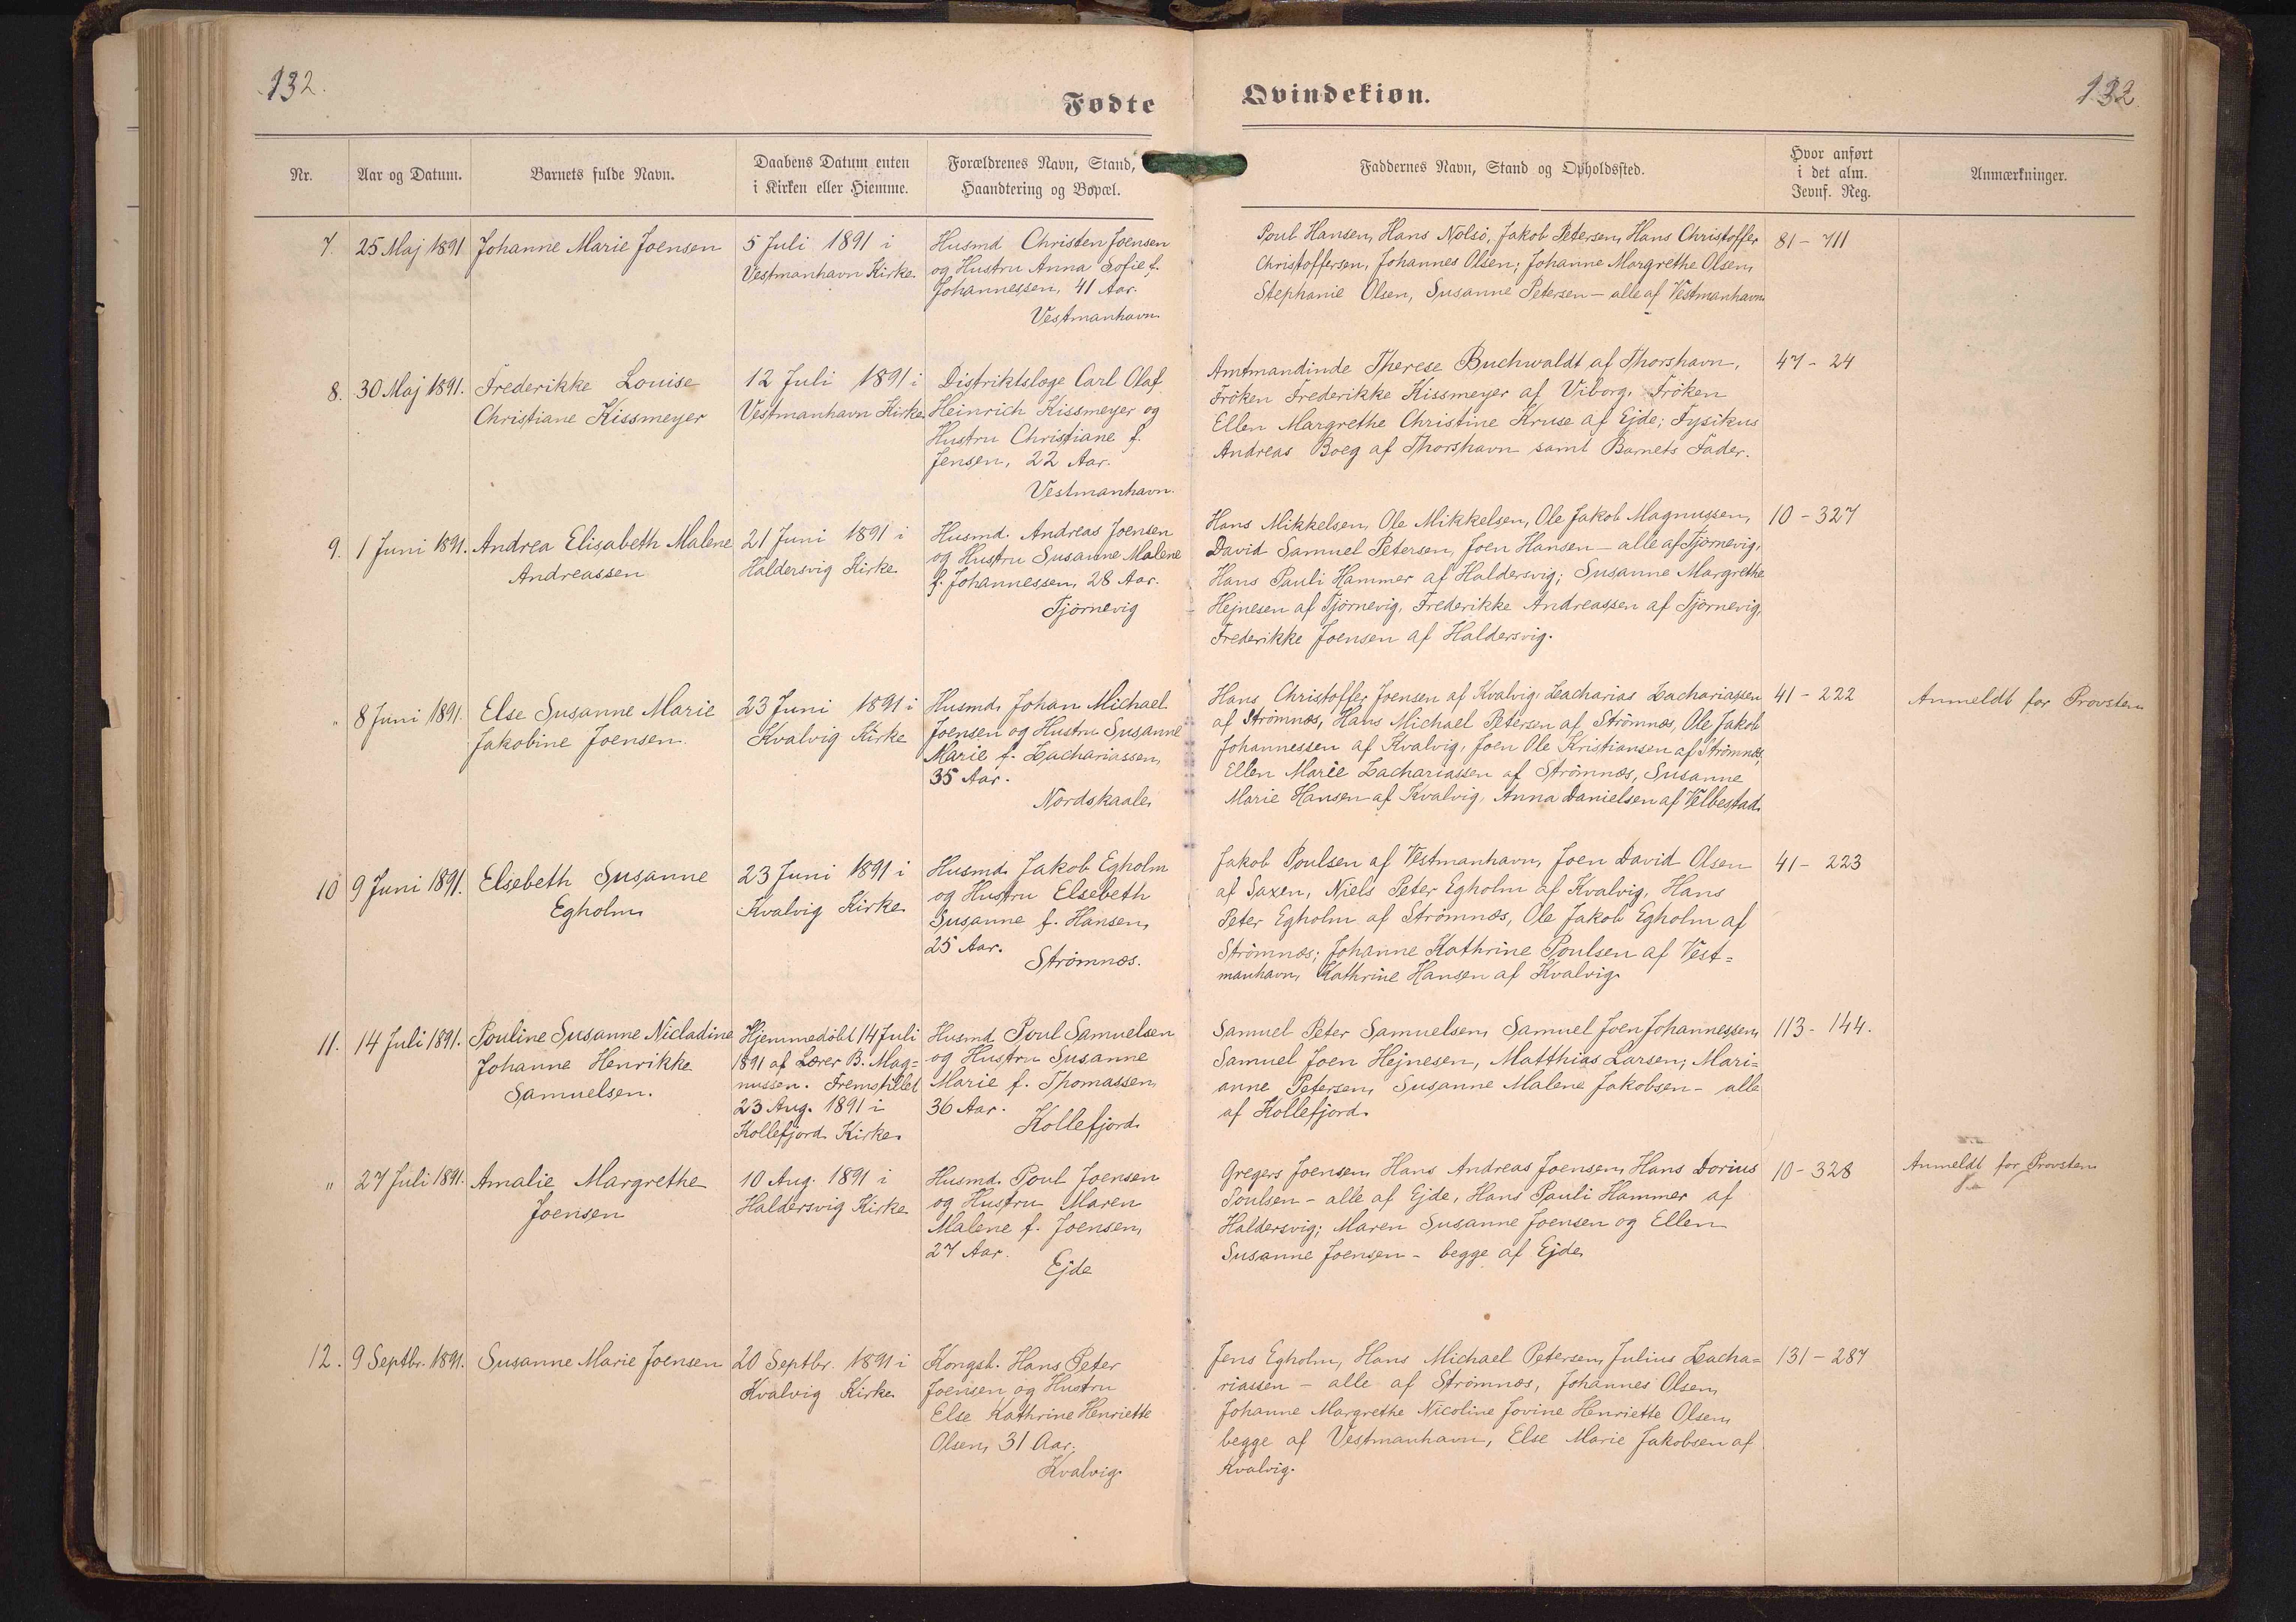 132.
Fødte
Nr.
Aar og Datum.
Barnets fulde Navn.
Daabens Datum enten
i Kirken eller Hiemme.
Forældrenes Navn, Stand,
Haandtering og Bopæl.
7.
25 Maj 1891
Johanne Marie Joensen
5 Juli 1891 i
Vestmanhavn Kirke.
Husmd Christen Joensen
og Hustru Anna Sofie f.
Johannessen, 41 Aar.
Vestmanhavn.
8.
30 Maj 1891.
Frederikke Louise
Christiane Kissmeyer
12 Juli 1891 i
Vestmanhavn Kirke
Distriktslæge Carl Olaf
Heinrich Kissmeyer og
Hustru Christiane f.
Jensen, 22 Aar.
Vestmanhavn.
9.
1 Juni 1891.
Andrea Elisabeth Malene
Andreassen
21 Juni 1891 i
Haldersvig Kirke
Husmd. Andreas Joensen
og Hustru Susanne Malene
f. Johannessen, 28 Aar.
Tjörnevig
"
8 Juni 1891.
Else Susanne Marie
Jakobine Joensen.
23 Juni 1891 i
Kvalvig Kirke
Husmd. Johan Michael
Joensen og Hustru Susanne
Marie f. Zachariassen,
35 Aar.
Nordskaale
10
9 Juni 1891.
Elsebeth Susanne
Egholm
23 Juni 1891 i
Kvalvig Kirke
Husmd. Jakob Egholm
og Hustru Elsebeth
Susanne f. Hansen,
25 Aar.
Strömnæs.
11.
14 Juli 1891.
Pouline Susanne Nicladine
Johanne Henrikke
Samuelsen.
Hjemmedöbt 14 Juli
1891 af Lærer B. Mag=
nussen. Fremstillet
23 Aug. 1891 i
Kollefjord Kirke.
Husmd Poul Samuelsen
og Hustru Susanne
Marie f. Thomassen,
36 Aar.
Kollefjord.
"
27 Juli 1891.
Amalie Margrethe
Joensen
10 Aug. 1891 i
Haldersvig Kirke
Husmd. Poul Joensen
og Hustru Maren
Malene f. Joensen,
27 Aar.
Ejde
12.
9 Septbr. 1891.
Susanne Marie Joensen
20 Septbr. 1891 i
Kvalvig Kirke
Kongsb. Hans Peter
Joensen og Hustru
Else Kathrine Henriette
Olsen, 31 Aar.
Kvalvig.
Qvindekiøn.
132
Faddernes Navn, Stand og Opholdssted.
Hvor anført
i det alm.
Jevnf. Reg.
Anmærkninger.
Poul Hansen, Hans Nolsö, Jakob Petersen, Hans Christoffer
Christoffersen, Johannes Olsen; Johanne Margrethe Olsen,
Stephanie Olsen, Susanne Petersen - alle af Vestmanhavn
81 - 711
Amtmandinde Therese Buchwaldt af Thorshavn,
Fröken Frederikke Kissmeyer af Viborg, Fröken
Ellen Margrethe Christine Kruse af Ejde; Fysikus
Andreas Boeg af Thorshavn samt Barnets Fader.
47 - 24
Hans Mikkelsen, Ole Mikkelsen, Ole Jakob Magnussen,
David Samuel Petersen, Joen Hansen - alle af Tjörnevig,
Hans Pauli Hammer af Haldersvig; Susanne Margrethe
Hejnesen af Tjörnevig, Frederikke Andreassen af Tjörnevig,
Frederikke Joensen af Haldersvig.
10 - 327
Hans Christoffer Joensen af Kvalvig, Zacharias Zachariassen
af Strömnæs, Hans Michael Petersen af Strömnæs, Ole Jakob
Johannessen af Kvalvig, Joen Ole Kristiansen af Strömnæs,
Ellen Marie Zachariassen af Strömnæs, Susanne
Marie Hansen af Kvalvig, Anna Danielsen af Velbestad.
41 - 222
Anmeldt for Provsten
Jakob Poulsen af Vestmanhavn, Joen David Olsen
af Saxen, Niels Peter Egholm af Kvalvig, Hans
Peter Egholm af Strömnæs, Ole Jakob Egholm af
Strömnæs; Johanne Kathrine Poulsen af Vest=
manhavn, Kathrine Hansen af Kvalvig.
41 - 223
Samuel Peter Samuelsen, Samuel Joen Johannessen,
Samuel Joen Hejnesen, Matthias Larsen, Mari=
anne Petersen, Susanne Malene Jakobsen - alle
af Kollefjord.
113 - 144.
Gregers Joensen, Hans Andreas Joensen, Hans Dorius
Poulsen - alle af Ejde, Hans Pauli Hammer af
Haldersvig; Maren Susanne Joensen og Ellen
Susanne Joensen - begge af Ejde
10 - 328
Anmeldt for Provsten
Jens Egholm, Hans Michael Petersen, Julius Zacha=
riassen - alle af Strömnæs, Johannes Olsen,
Johanne Margrethe Nicoline Jovine Henriette Olsen,
begge af Vestmanhavn, Else Marie Jakobsen af
Kvalvig.
131 - 287